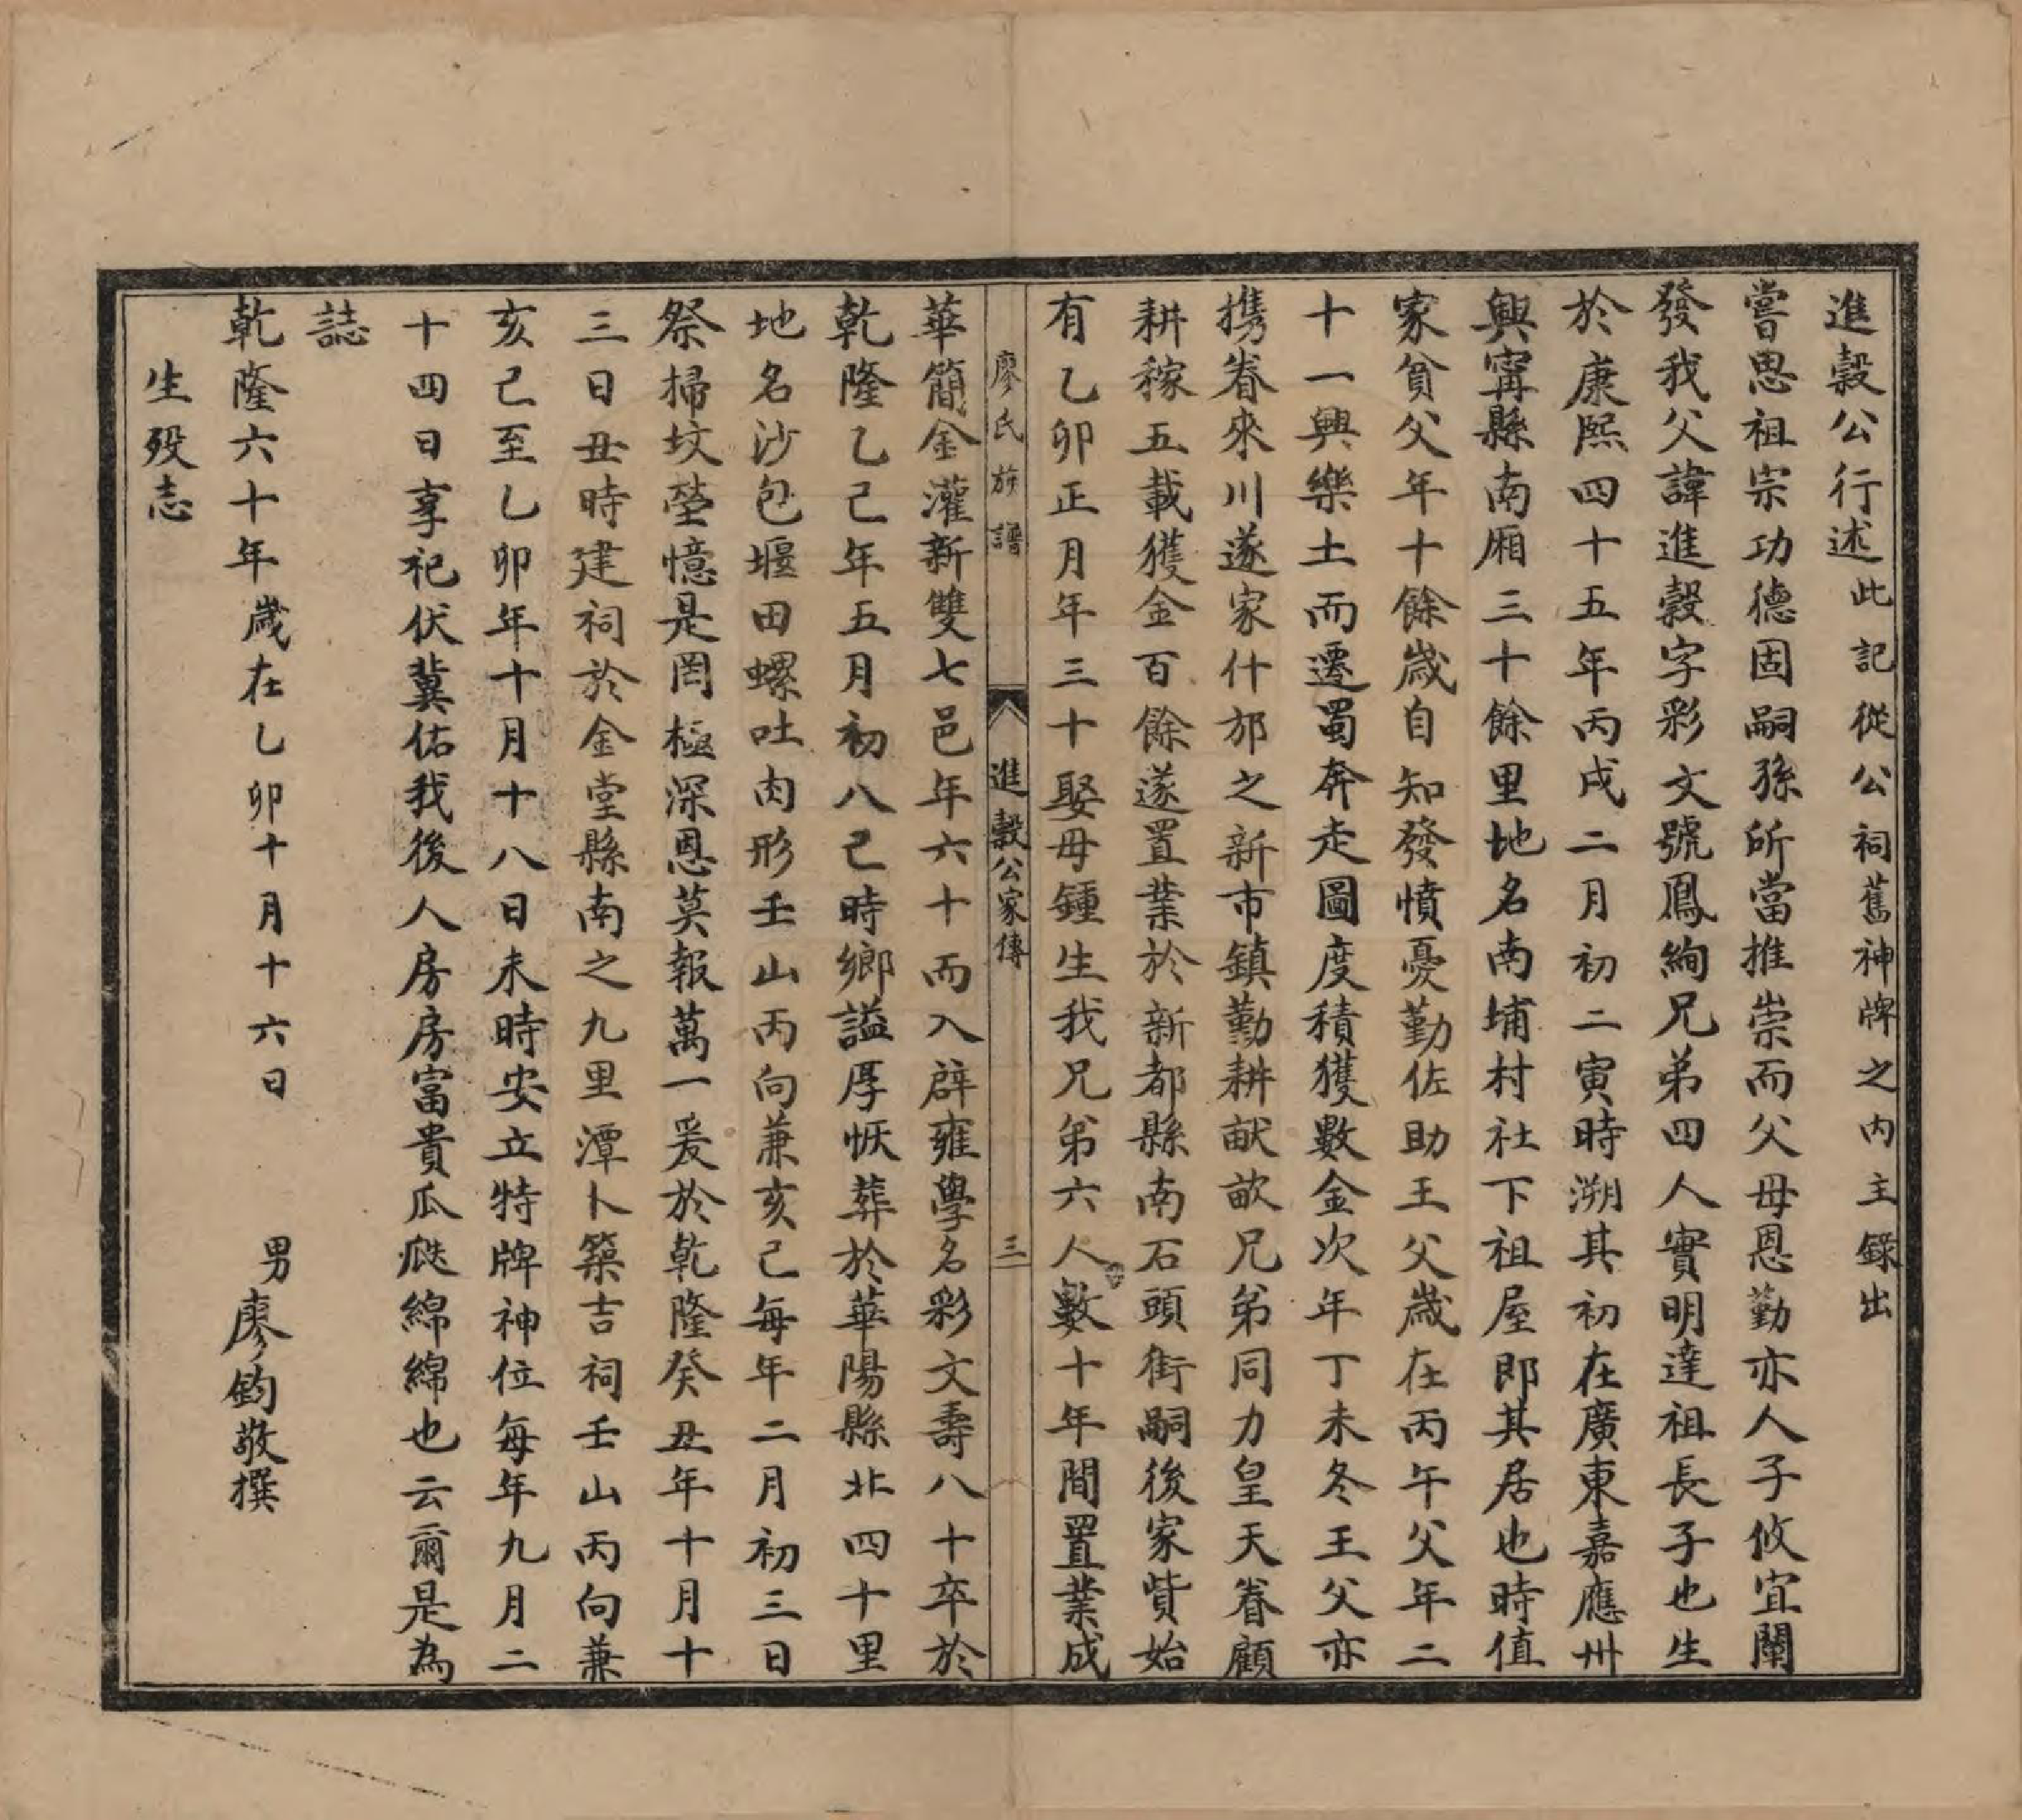 進穀公行述此記從公祠舊神牌之内主錄出
嘗思祖宗功德固嗣孫所當推崇而父母恩勤亦人子攸宜闡
發我父諱進穀字彩文號鳳絢兄弟四人實明達祖長子也生
於康熙四十五年丙戌二月初二寅時溯其初在廣東嘉應州
興甯縣南厢三十餘里地名南埔村社下祖屋即其居也時值
家貧父年十餘歲自知發憤憂勤佐助王父歲在丙午父年二
十一興樂土而遷蜀奔走圖度積獲數金次年丁未冬王父亦
攜眷來川遂家什邡之新市鎮勤耕献畝兄弟同力皇天眷顧
耕稼五載獲金百餘遂置業於新都縣南石頭街嗣後家貲始
有乙卯正月年三十娶母鍾生我兄弟六人數十年間置業成
廖氏族譜 進穀公家傳 三
華簡金灌新雙七邑年六十而入辟雍學名彩文壽八十卒於
乾隆乙己年五月初八己時鄉謚厚恢葬於華陽縣北四十里
地名沙包堰田螺吐肉形壬山丙向兼亥己每年二月初三日
祭掃坟塋憶是罔極深恩莫報萬一爰於乾隆癸丑年十月十
三日丑時建祠於金堂縣南之九里潭卜築吉祠壬山丙向兼
亥己至乙卯年十月十八日未時安立特牌神位每年九月二
十四日享祀伏冀佑我後人房房富貴瓜瓞綿綿也云爾是為
誌
乾隆六十年歲在乙卯十月十六日 男廖鈞敬撰
生殁志